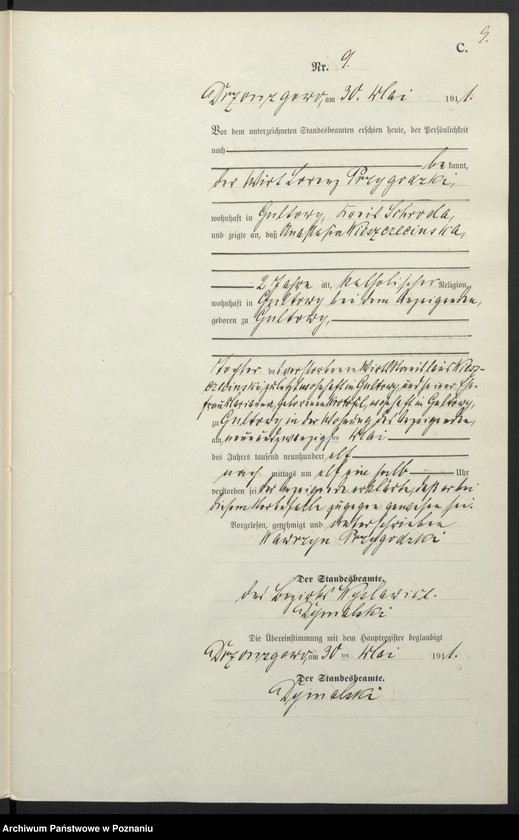 9.
C.
Nr. 9.
am 30. Mai 1911.
Vor dem unterzeichneten Standesbeamten erschien heute, der Persönlichkeit
nach
bekannt,
der Wirt Lorenz Przygodzki,
wohnhaft in Gultowy, Kreis Schroda,
und zeigte an, daß Anastasia
2 Jahre alt, katholischer Religion,
wohnhaft in Gultowy bei dem Anzeigenden,
geboren zu Gultowy,
Tochter des verstorbenen Wirt Stanislaus
zuletzt wohnhaft in Gultowy und seiner Ehe-
frau Marianna, geborenen wohnhaft in Gultowy,
zu Gultowy in der Wohnung des Anzeigenden,
am neunundzwanzigsten Mai
des Jahres tausend neunhundert elf
nach mittags um elf ein halb Uhr
verstorben sei. Der Anzeigende erklärte, daß er bei
diesem Sterbefalle zugegen gewesen sei.
Vorgelesen, genehmigt und unterschrieben
Wawrzyn Przygodzki
Der Standesbeamte.
des Bezirks
Dymalski
Die Übereinstimmung mit dem Hauptregister beglaubigt
am 30 ten Mai 1911.
Der Standesbeamte.
Dymalski
Archiwum Państwowe w Poznaniu